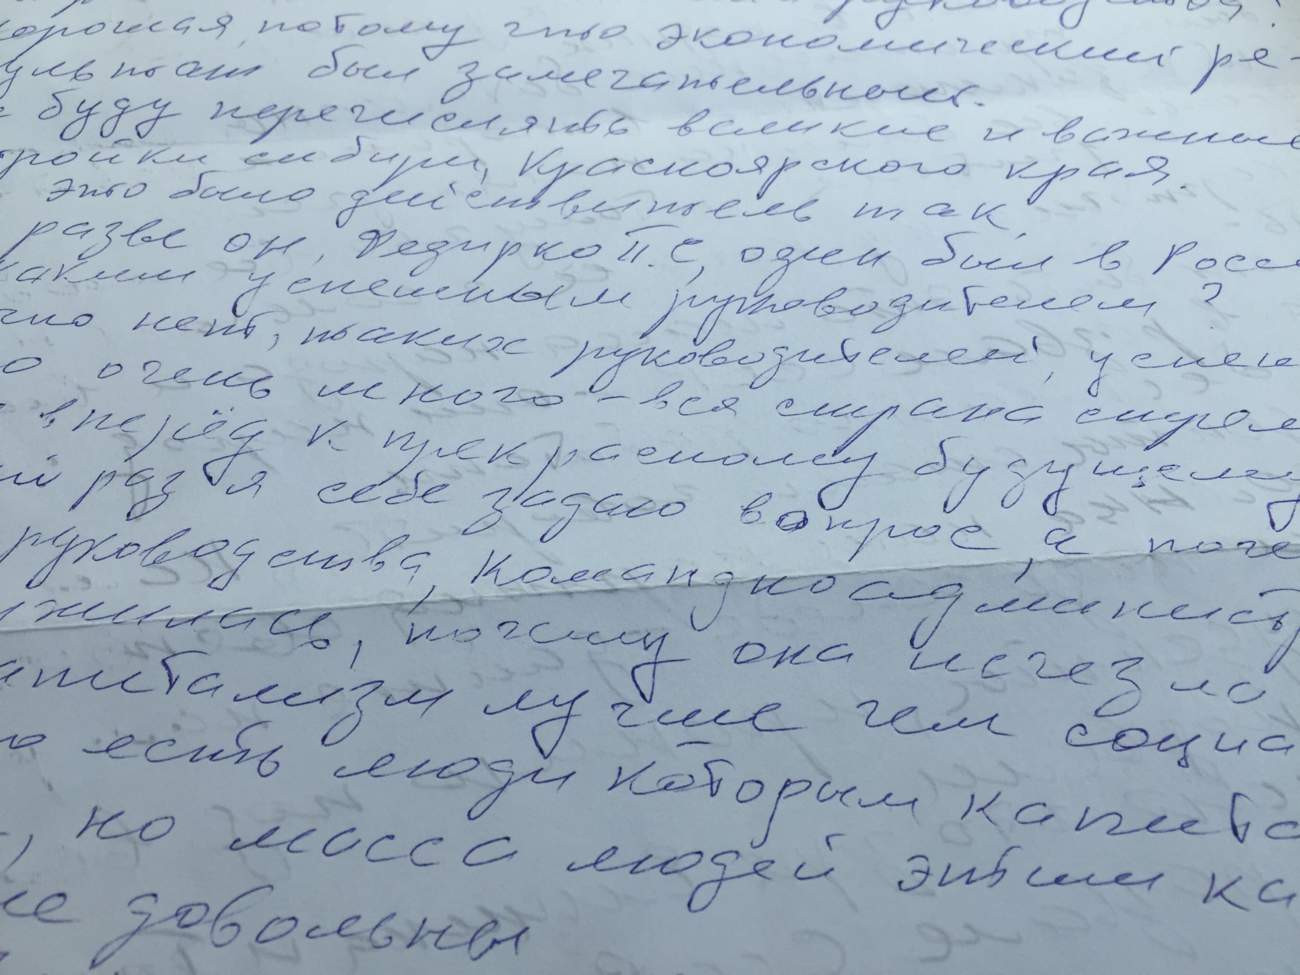 руководства?
хорошая, потому что экономический ре-
зультат был замечательным.
е буду перечислять великие и важные
тройки сибири, Красноярского края.
это было действитель так
разве он, Федирко П.С, один был в Росси
таким успешным руководителем?
чно нет, таких руководителей, успеш
о очень много - вся страна строем
вперёд к прекрасному будущему
ий раз я себе задаю вопрос, а поче
руководства, командноадминистр
ижилась, почему она исчезло
апитализм лучше чем социа
о есть люди которым капита
, но масса людей этим ка
не довольны